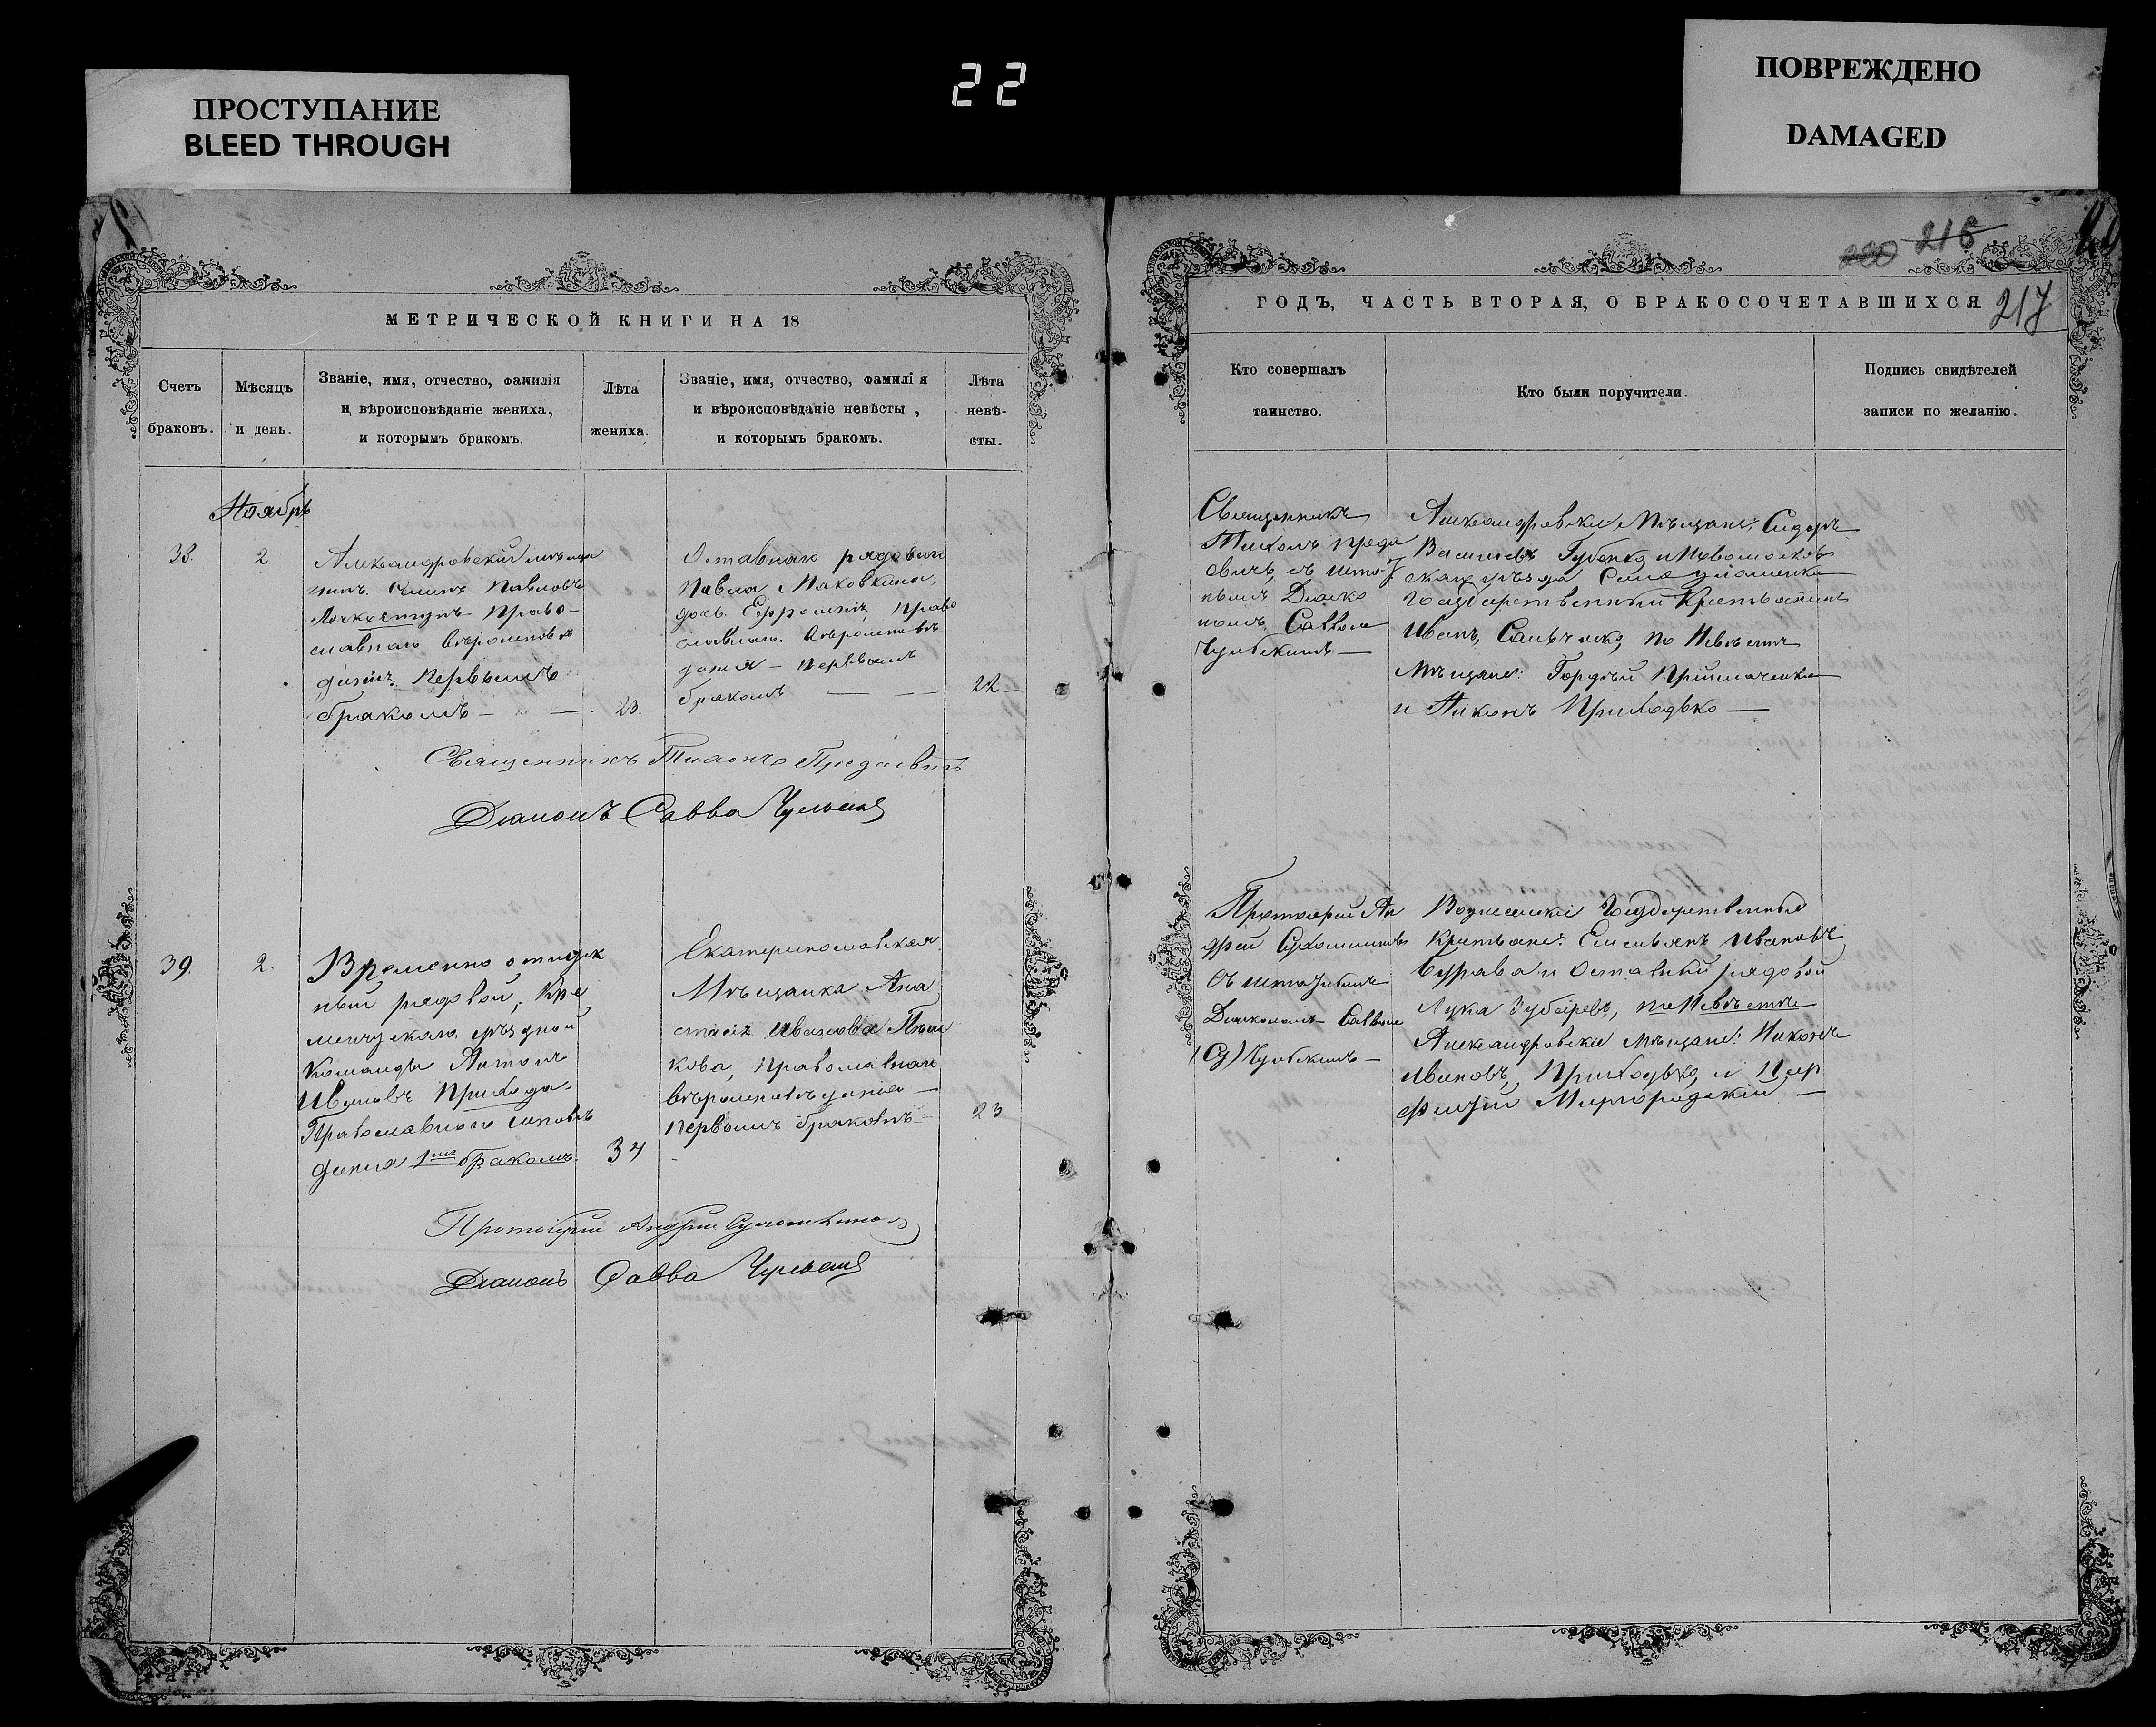 ПРОСТУПАНИЕ
BLEED THROUGH
22
ПОВРЕЖДЕНО
DAMAGED
МЕТРИЧЕСКОЙ КНИГИ НА 18
Счетъ браковъ.
Мѣсяцъ и день.
Званіе, имя, отчество, фамилія
и вѣроисповѣданіе жениха,
и которымъ бракомъ.
Лѣта
жениха.
Званіе, имя, отчество, фамилія
и вѣроисповѣданіе невѣсты,
и которымъ бракомъ.
Лѣта
невѣ-
сты.
Ноябрь
38.
2.
Александровскій мѣща
нинъ Павловъ
Право-
славнаго вѣроисповѣ
данія Первымъ
бракомъ —
23.
Отставнаго рядоваго
Павла Маковкина,
дочь Право
славнаго вѣроисповѣ
данія — первымъ
бракомъ —
22
Священникъ Тихонъ
Діаконъ Савва
39.
2.
Временно отпуск
ный рядовой, Кре
менчугской уѣздной
Команды Антонъ
Ивановъ Приходько
Православнаго исповѣ
данія 1мъ бракомъ.
34
Екатеринославская
Мѣщанка Ана
стасія Иванова
кова, Православнаго
вѣроисповѣданія —
первымъ бракомъ —
23
Протоіерей Андрей
Діаконъ Савва
220 216
217
ГОДЪ, ЧАСТЬ ВТОРАЯ, О БРАКОСОЧЕТАВШИХСЯ.
Кто совершалъ
таинство.
Кто были поручители.
Подпись свидѣтелей
записи по желанію.
Священникъ
Тихонъ Преда
евичъ, съ
Діако
номъ Саввою
Александровскіе Мѣщане: Сидоръ
Васильевъ Губенко и Новомосков
скаго уѣзда Села
Государственный Крестьянинъ
Иванъ по Невѣстѣ
Мѣщане: Гордѣй Пріймаченко
и Никонъ Приходько —
Протоіерей Ан
дрей
Съ
Діакономъ Саввою
Вознесенскіе Государственные
Крестьяне: Емельянъ Ивановъ
Бурава и Отставный рядовой
Лука Зубаревъ, по Невѣстѣ
Александровскіе мѣщане: Никонъ
Ивановъ, Приходько, и Пор
фирій Миргородскій —